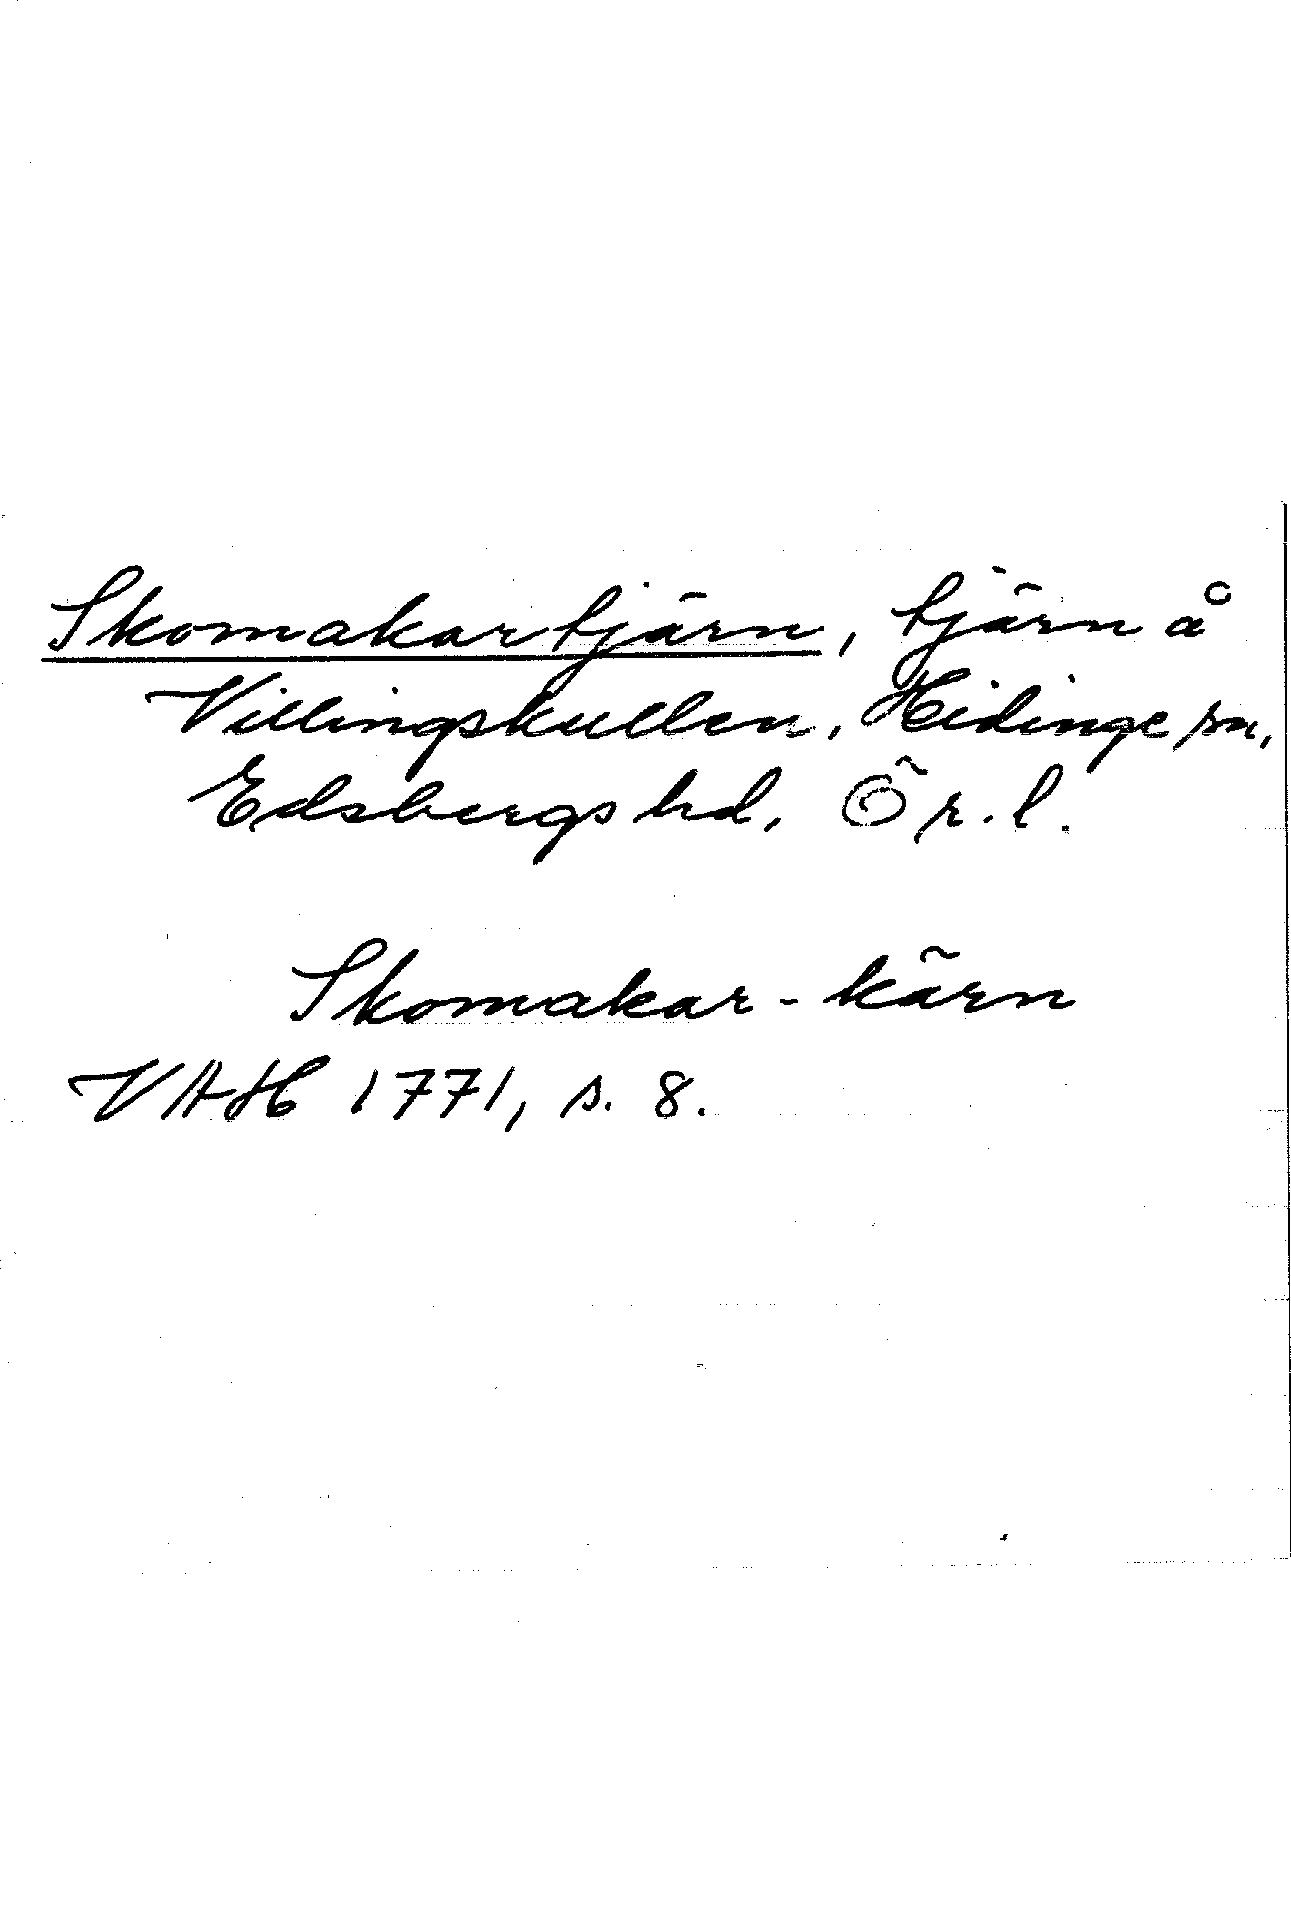 Skomakartjärn, tjärn å
Villingskullen, Hidinge sn,
Edsbergs hd, Ör. l.
Skomakar-kärn
VAH 1771, s. 8.